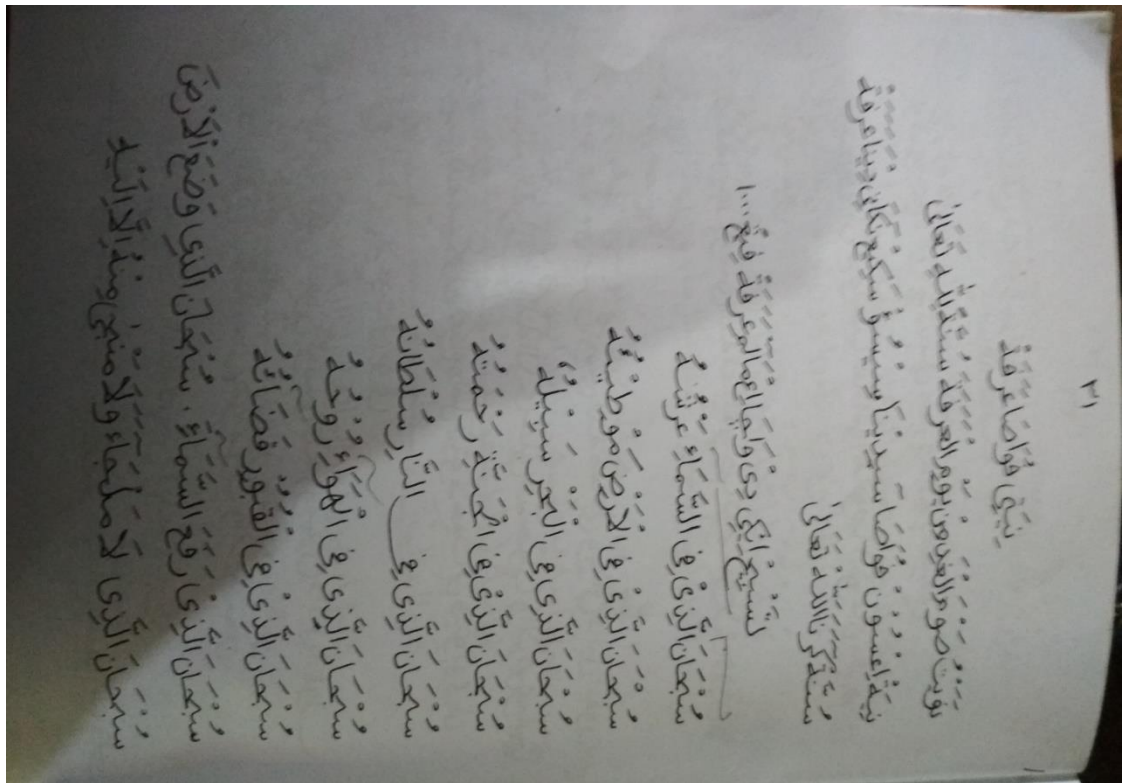 ٣١
نِيَةْ فُوَاصَا عَرَفَةْ
نَوَيْتُ صَوْمَ الْغَدِ عَنْ يَوْمِ الْعَرَفَةَ سُنَّةً لِلّٰهِ تَعَالٰى
نِيَةْ اِغْسُوْنْ فُوَاصَا
سُنَّةْ كَرَنَا اللّٰه تَعَالٰى
دِيْ وَاچَا اِڠْ مَالَمْ عَرَفَةْ فِڠْ ١٠٠٠
سُبْحَانَ الَّذِيْ فِى السَّمَاءِ عَرْشُهُ
سُبْحَانَ الَّذِيْ فِى الْاَرْضِ مَوْطِئُهُ
سُبْحَانَ الَّذِيْ فِى الْبَحْرِ سَبِيْلُهُ
سُبْحَانَ الَّذِيْ فِى الْجَنَّةِ رَحْمَتُهُ
سُبْحَانَ الَّذِيْ فِى النَّارِ سُلْطَانُهُ
سُبْحَانَ الَّذِيْ فِى الْهَوَاءِ رُوْحُهُ
سُبْحَانَ الَّذِيْ فِى الْقُبُوْرِ قَضَائُهُ
سُبْحَانَ الَّذِيْ رَفَعَ السَّمَاءَ، سُبْحَانَ الَّذِيْ وَضَعَ الْاَرْضَ
سُبْحَانَ الَّذِيْ لَا مَلْجَاءَ وَلَا مَنْجٰى مِنْهُ اِلَّا اِلَيْهِ